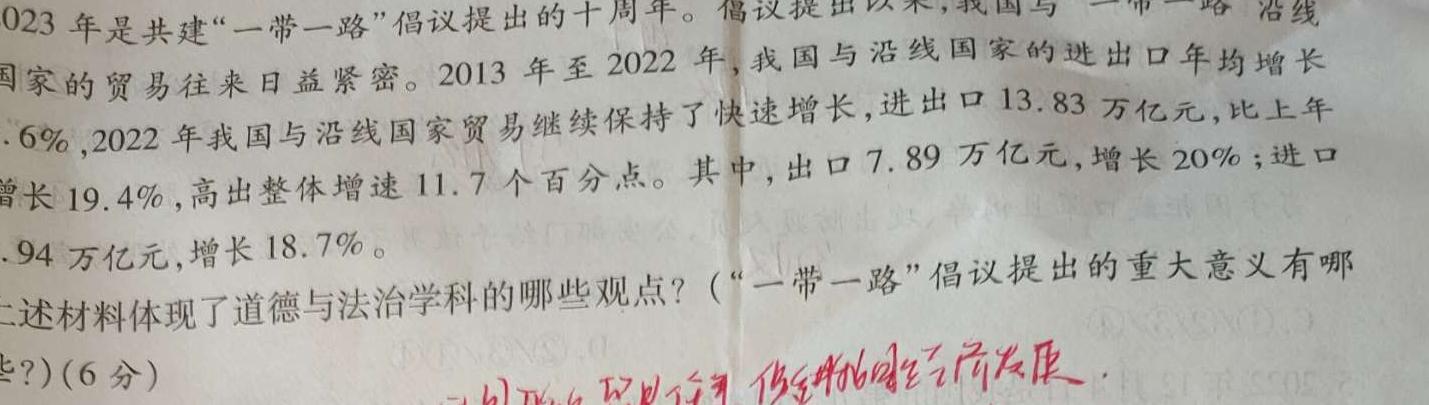 023 年是共建“一带一路”倡议提出的十周年。倡议提出以来,我国与“一带一路”沿线
国家的贸易往来日益紧密。2013 年至 2022 年,我国与沿线国家的进出口年均增长
.6%,2022 年我国与沿线国家贸易继续保持了快速增长,进出口 13.83 万亿元,比上年
增长 19.4%,高出整体增速 11.7 个百分点。其中,出口 7.89 万亿元,增长 20%;进口
.94 万亿元,增长 18.7%。
上述材料体现了道德与法治学科的哪些观点?(“一带一路”倡议提出的重大意义有哪
些?)(6 分)
经济发展.